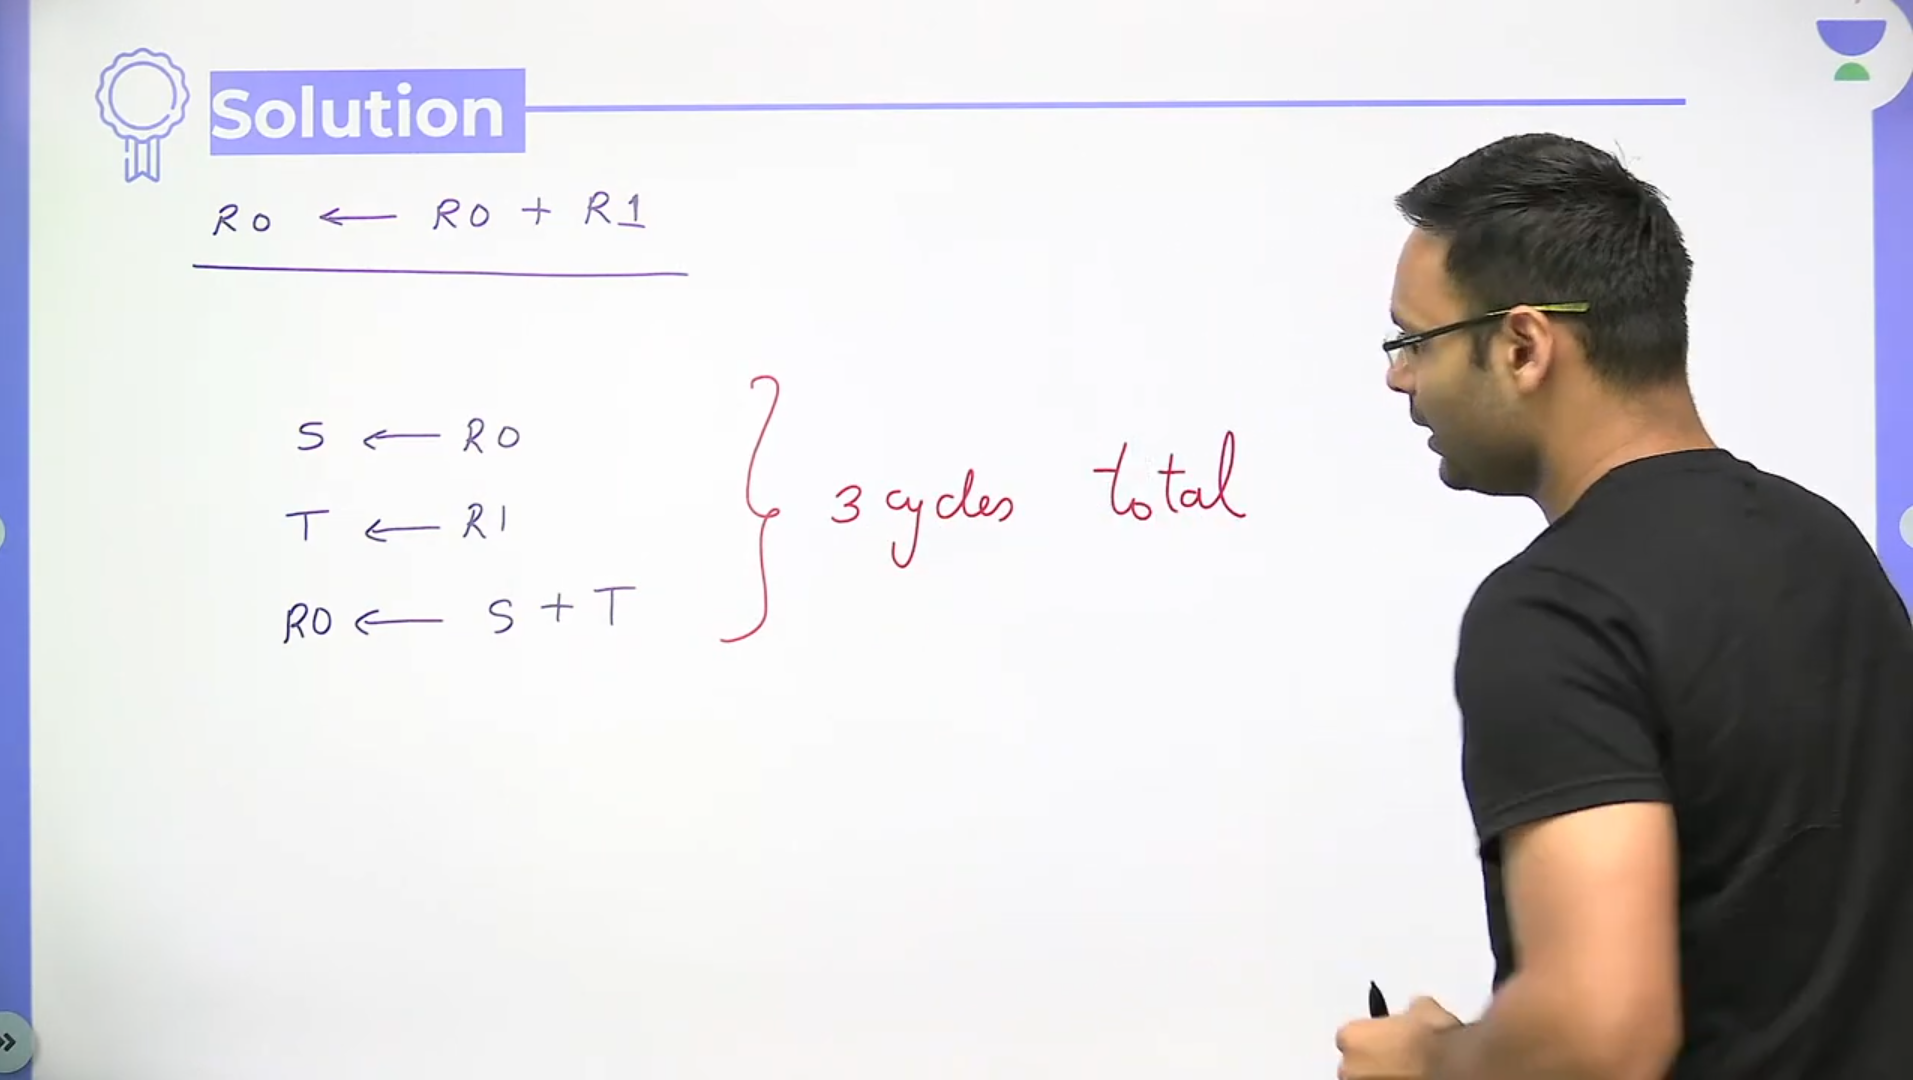 Solution
R0 ← R0 + R1
S ← R0
T ← R1
R0 ← S + T
3 cycles total